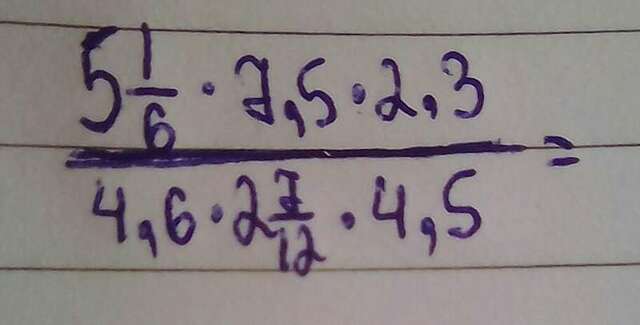 5 1/6 · 7,5 · 2,3
4,6 · 2 7/12 · 4,5 =